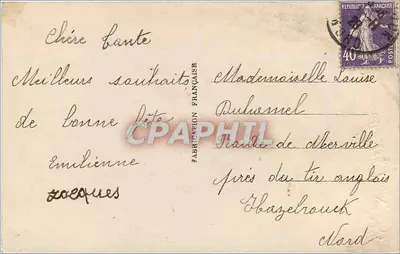 Chère tante
Meilleurs souhaits
de bonne fête
Emilienne
Jacques
FABRICATION FRANÇAISE
CPARHTL
Mademoiselle Louise
Duhamel
Route de Merville
près du tir anglais
Hazebrouck
Nord
40